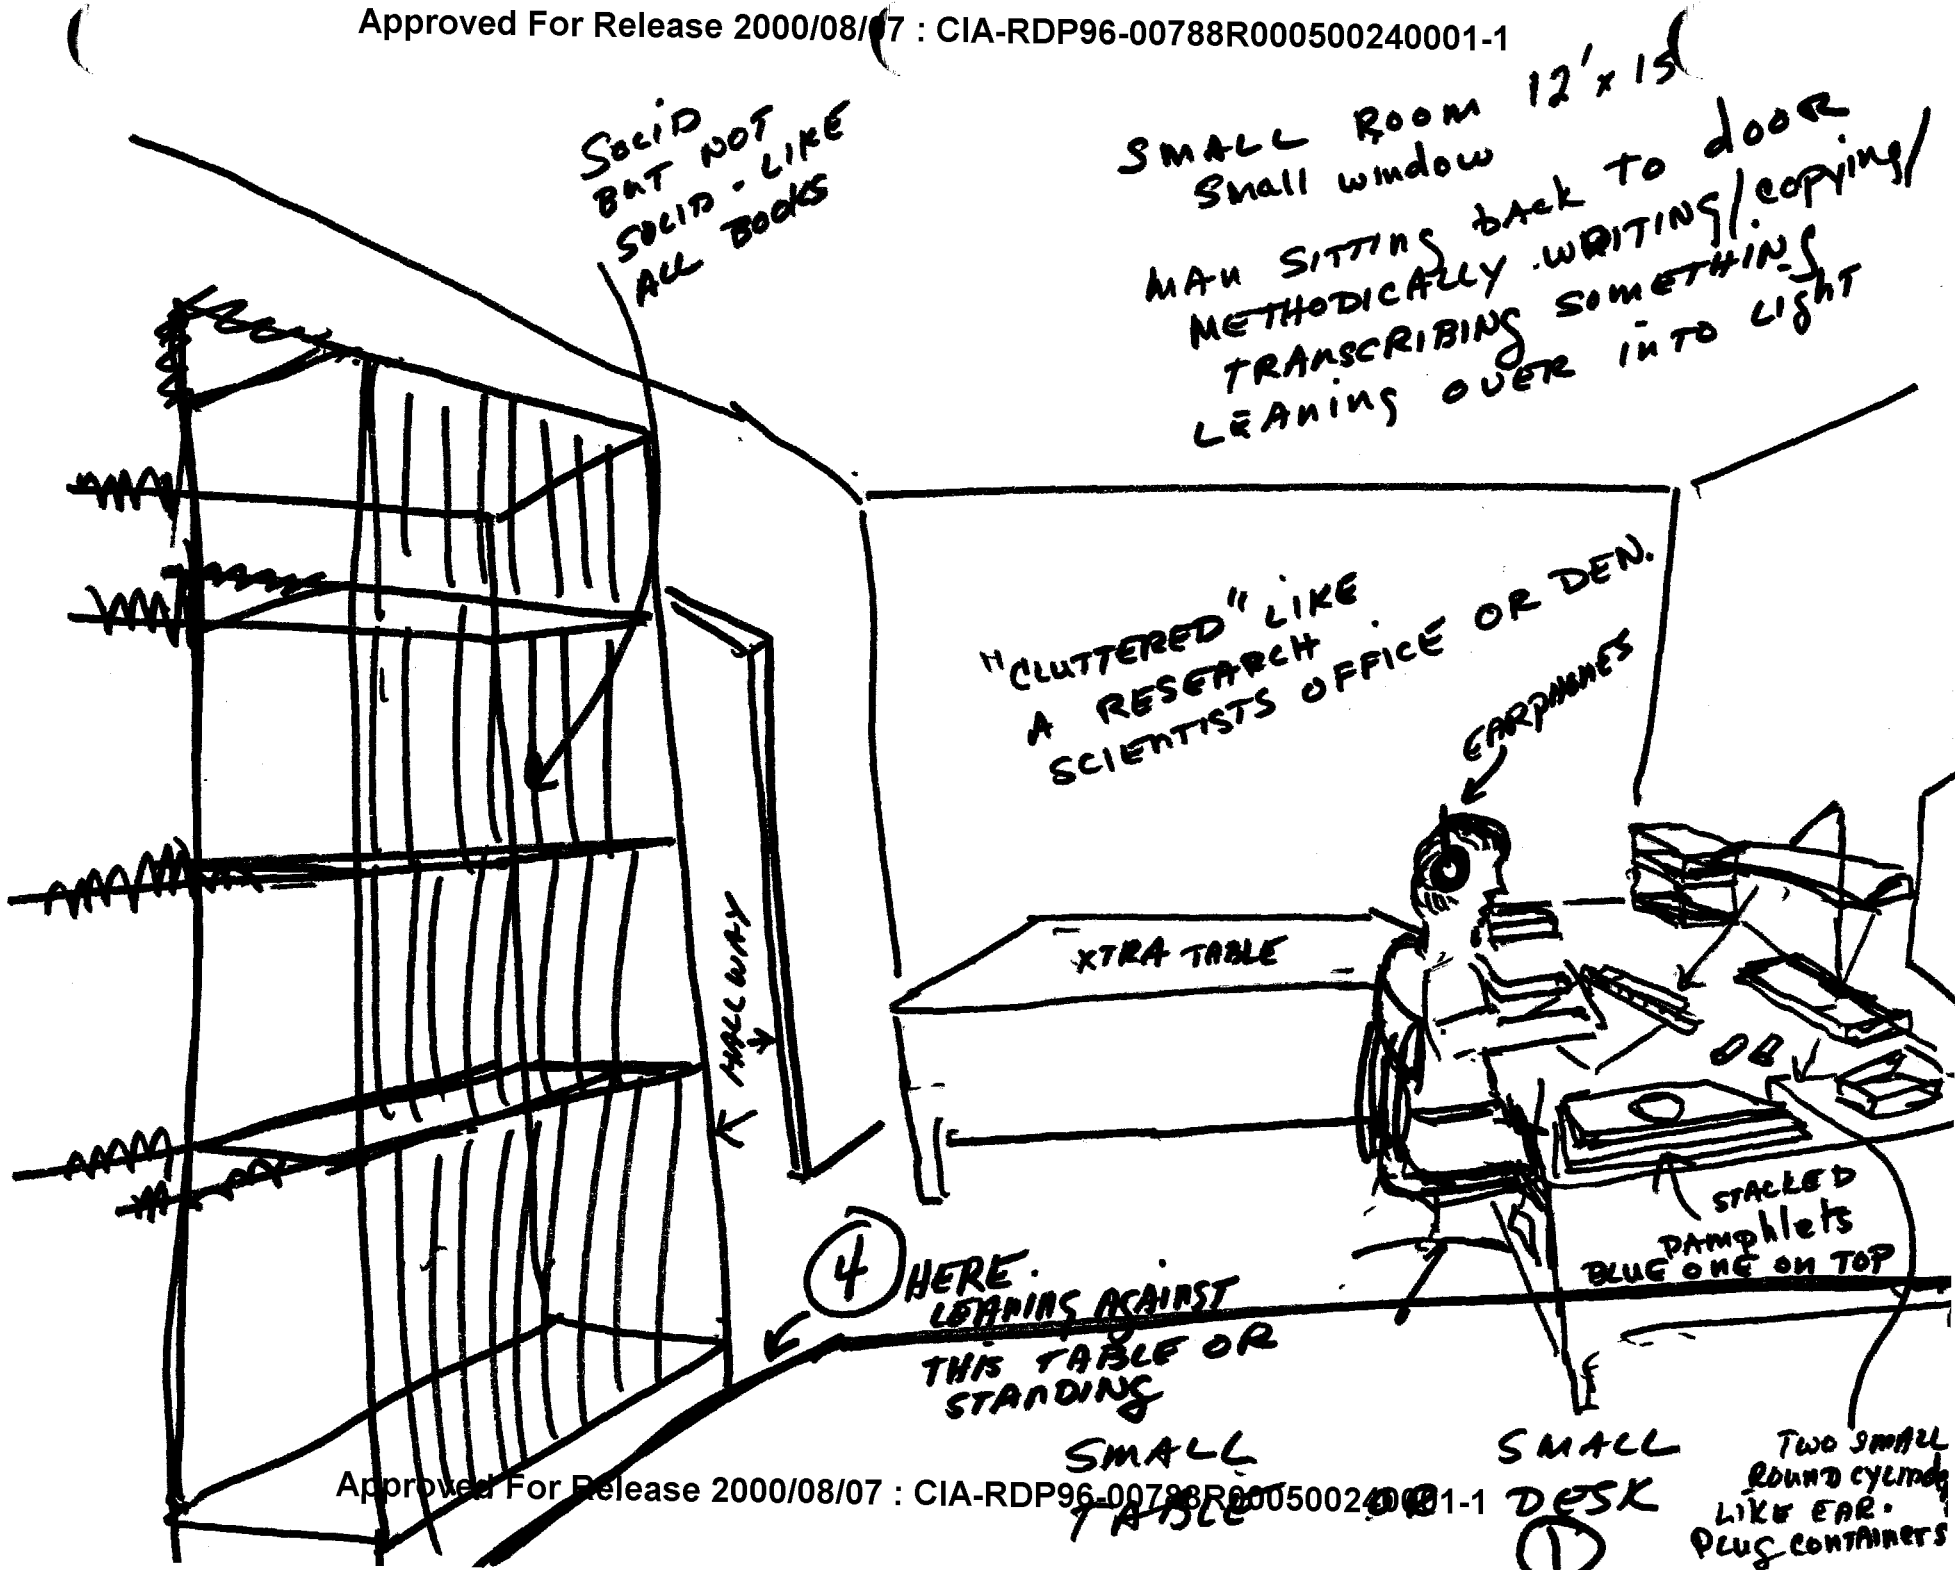 Approved For Release 2000/08/07 : CIA-RDP96-00788R000500240001-1
SOLID
BUT NOT
SOLID - LIKE
ALL BOOKS
SMALL ROOM 12' x 15
Small window
MAN SITTING back TO dooR
METHODICALLY WRITING/copying/
TRANSCRIBING SOMETHING
LEANING OVER INTO LIGHT
"CLUTTERED" LIKE
A RESEARCH
SCIENTISTS OFFICE OR DEN.
EARPHONES
HALLWAY
XTRA TABLE
STACKED
PAMphlets
BLUE ONE ON TOP
4 HERE.
LEANING AGAINST
THIS TABLE OR
STANDING
SMALL
TABLE OR
SMALL
DESK
1
TWO SMALL
ROUND
LIKE EAR-
PLUG CONTAINERS
Approved For Release 2000/08/07 : CIA-RDP96-00788R000500240001-1